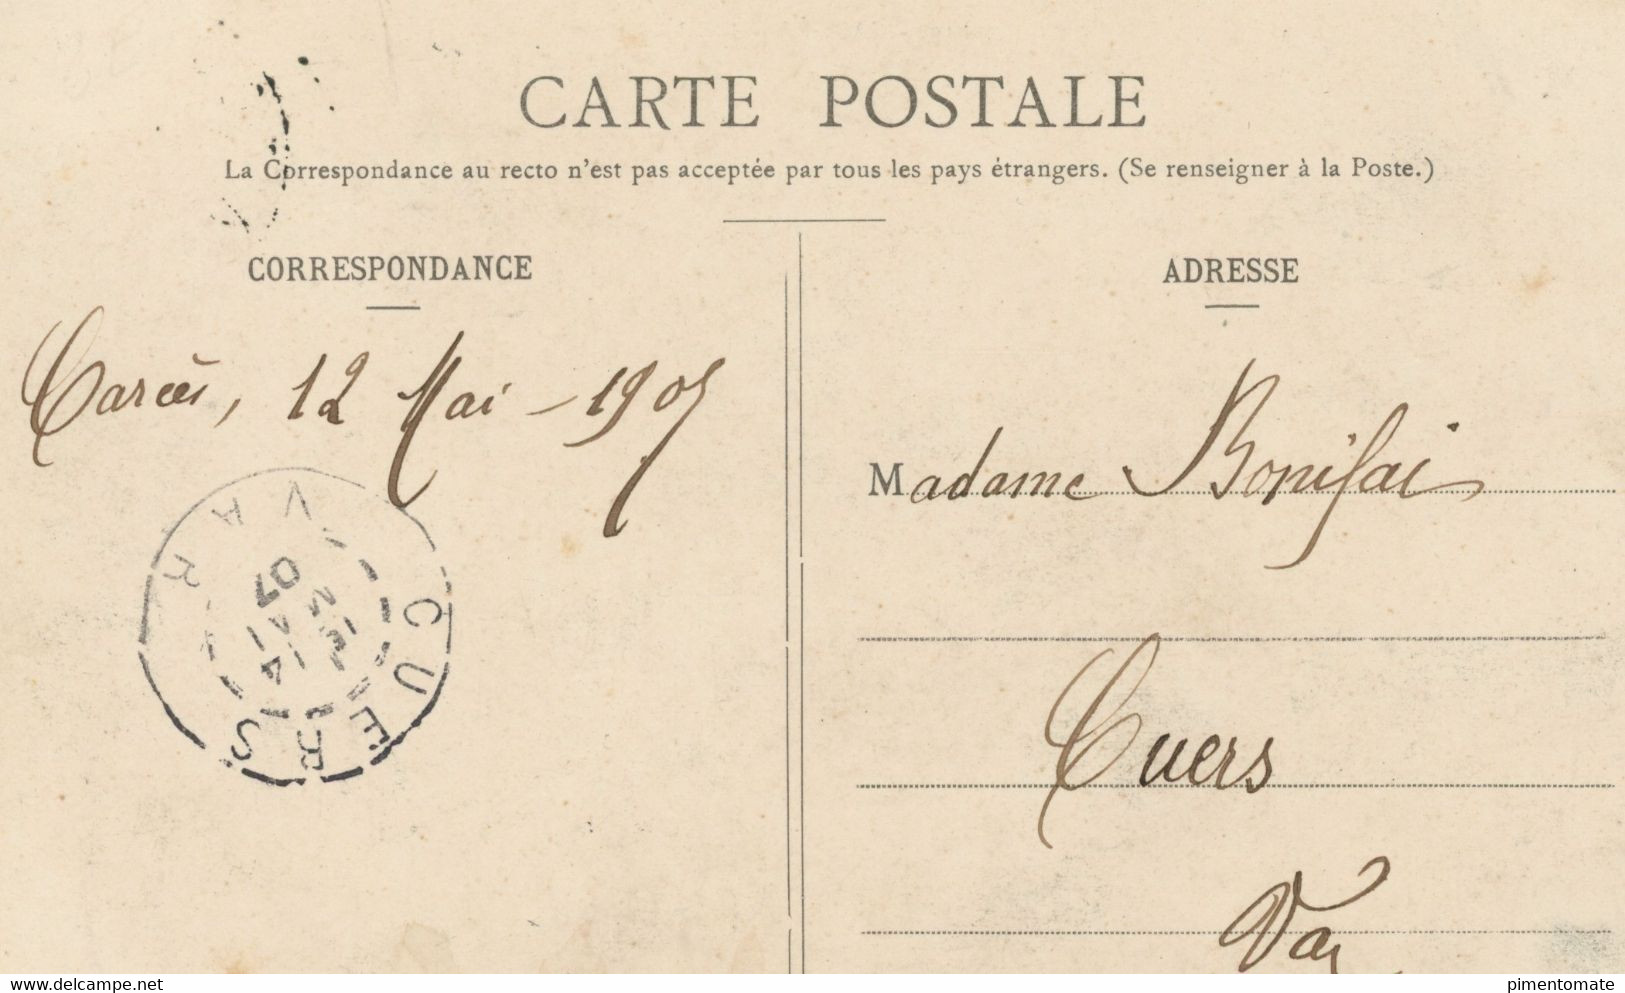 CARTE POSTALE
La Correspondance au recto n'est pas acceptée par tous les pays étrangers. (Se renseigner à la Poste.)
CORRESPONDANCE
Carcès, 12 Mai - 1907
CUERS
VAR
14
MAI
07
ADRESSE
Madame Bonifai
Cuers
Var
www.delcampe.net
pimentomate